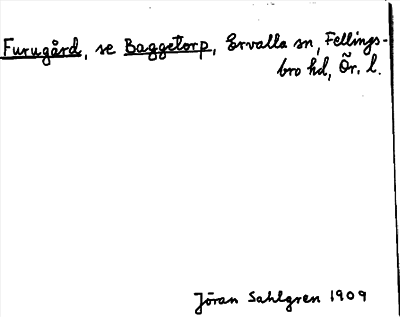 Furugård, se Baggetorp, Ervalla sn, Fellings-
bro hd, Ör. l.
Jöran Sahlgren 1909